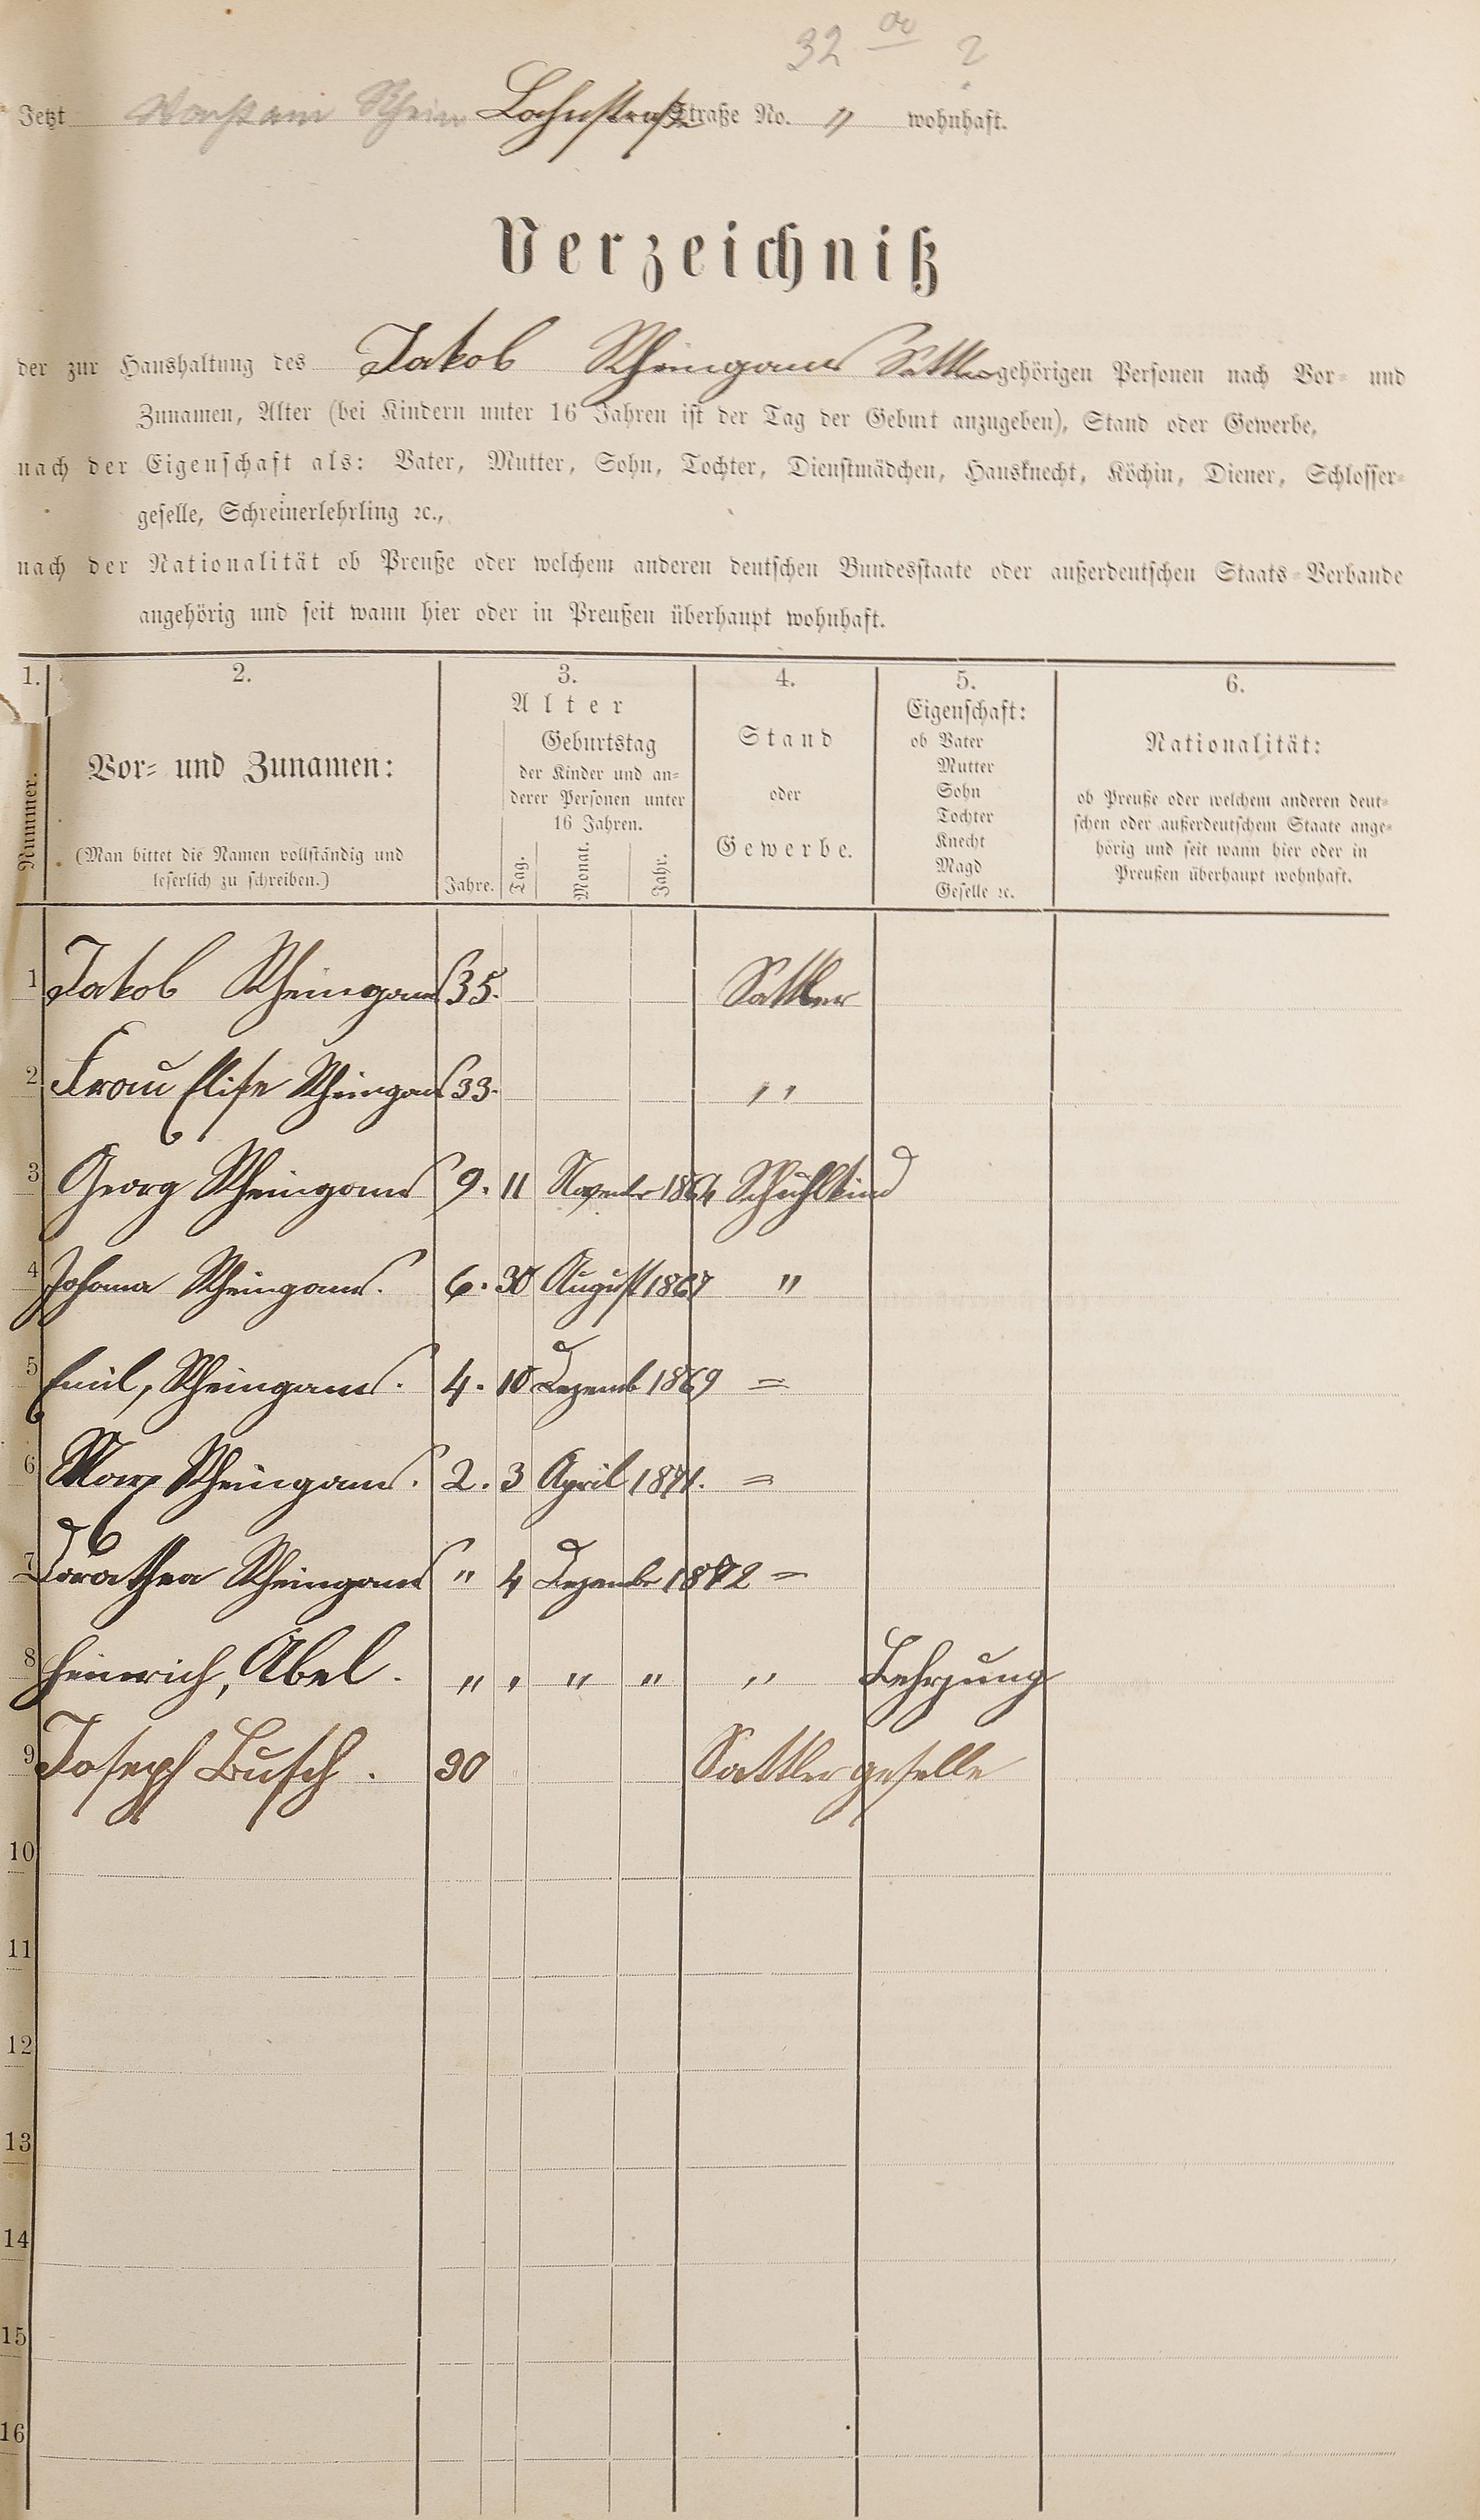 32 00 ?
Jetzt Rhein Lahnstraße Straße No. " wohnhaft.
Verzeichniß
der zur Haushaltung des Jakob Rheingans Sattler gehörigen Personen nach Vor- und
Zunamen, Alter (bei Kindern unter 16 Jahren ist der Tag der Geburt anzugeben), Stand oder Gewerbe,
nach der Eigenschaft als: Vater, Mutter, Sohn, Tochter, Dienstmädchen, Hausknecht, Köchin, Diener, Schlosser-
geselle, Schreinerlehrling ꝛc.,
nach der Nationalität ob Preuße oder welchem anderen deutschen Bundesstaate oder außerdeutschen Staats-Verbande
angehörig und seit wann hier oder in Preußen überhaupt wohnhaft.
1. 2. 3. 4. 5. 6.
Nummer.
Vor- und Zunamen:
(Man bittet die Namen vollständig und
leserlich zu schreiben.)
Alter
Geburtstag
der Kinder und an-
derer Personen unter
16 Jahren.
Jahre. Tag. Monat. Jahr.
Stand
oder
Gewerbe.
Eigenschaft:
ob Vater
Mutter
Sohn
Tochter
Knecht
Magd
Geselle ꝛc.
Nationalität:
ob Preuße oder welchem anderen deut-
schen oder außerdeutschem Staate ange-
hörig und seit wann hier oder in
Preußen überhaupt wohnhaft.
1 Jakob Rheingans 35. Sattler
2 Frau Elise Rheingans 33. "
3 Georg Rheingans 9. 11 Novembr 1864 Schuhlkind
4 Johana Rheingans. 6. 30 August 1867 "
5 Emil, Rheingans. 4. 10 Dezemb 1869 =
6 Max Rheingans. 2. 3 April 1871. =
7 Dorathea Rheingans " 4 Dezember 1872 =
8 Heinrich, Abel. " " " " " Lehrjung
9 Joseph Busch. 30 Sattler geselle
10
11
12
13
14
15
16